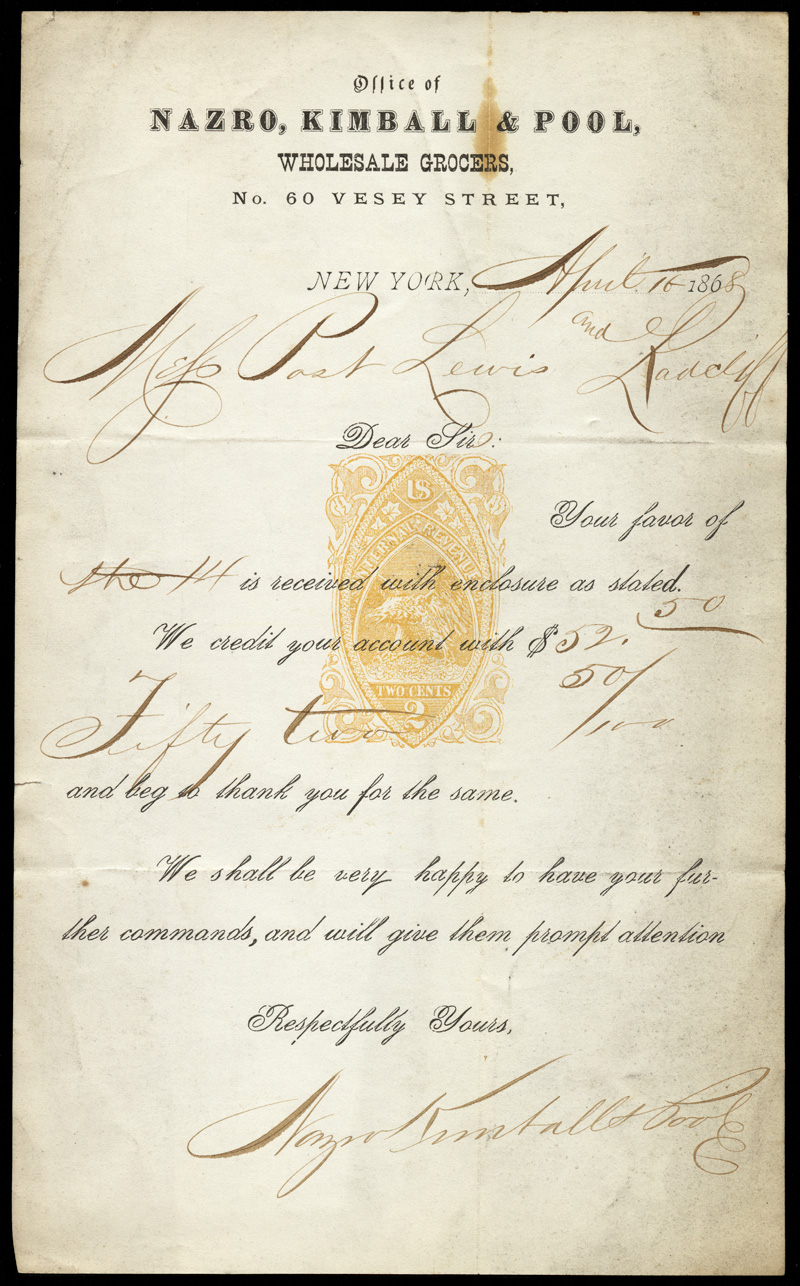 Office of
NAZRO, KIMBALL & POOL,
WHOLESALE GROCERS,
No. 60 VESEY STREET,
NEW YORK, April 16 1868
Mess Post Lewis and Radcliff
Dear Sir:
US
INTERNAL REVENUE
Your favor of
the 14 is received with enclosure as stated.
We credit your account with $ 52. 50
TWO CENTS
2
Fifty two 50/100
and beg to thank you for the same.
We shall be very happy to have your fur-
ther commands, and will give them prompt attention
Respectfully Yours,
Nazro Kimball & Pool